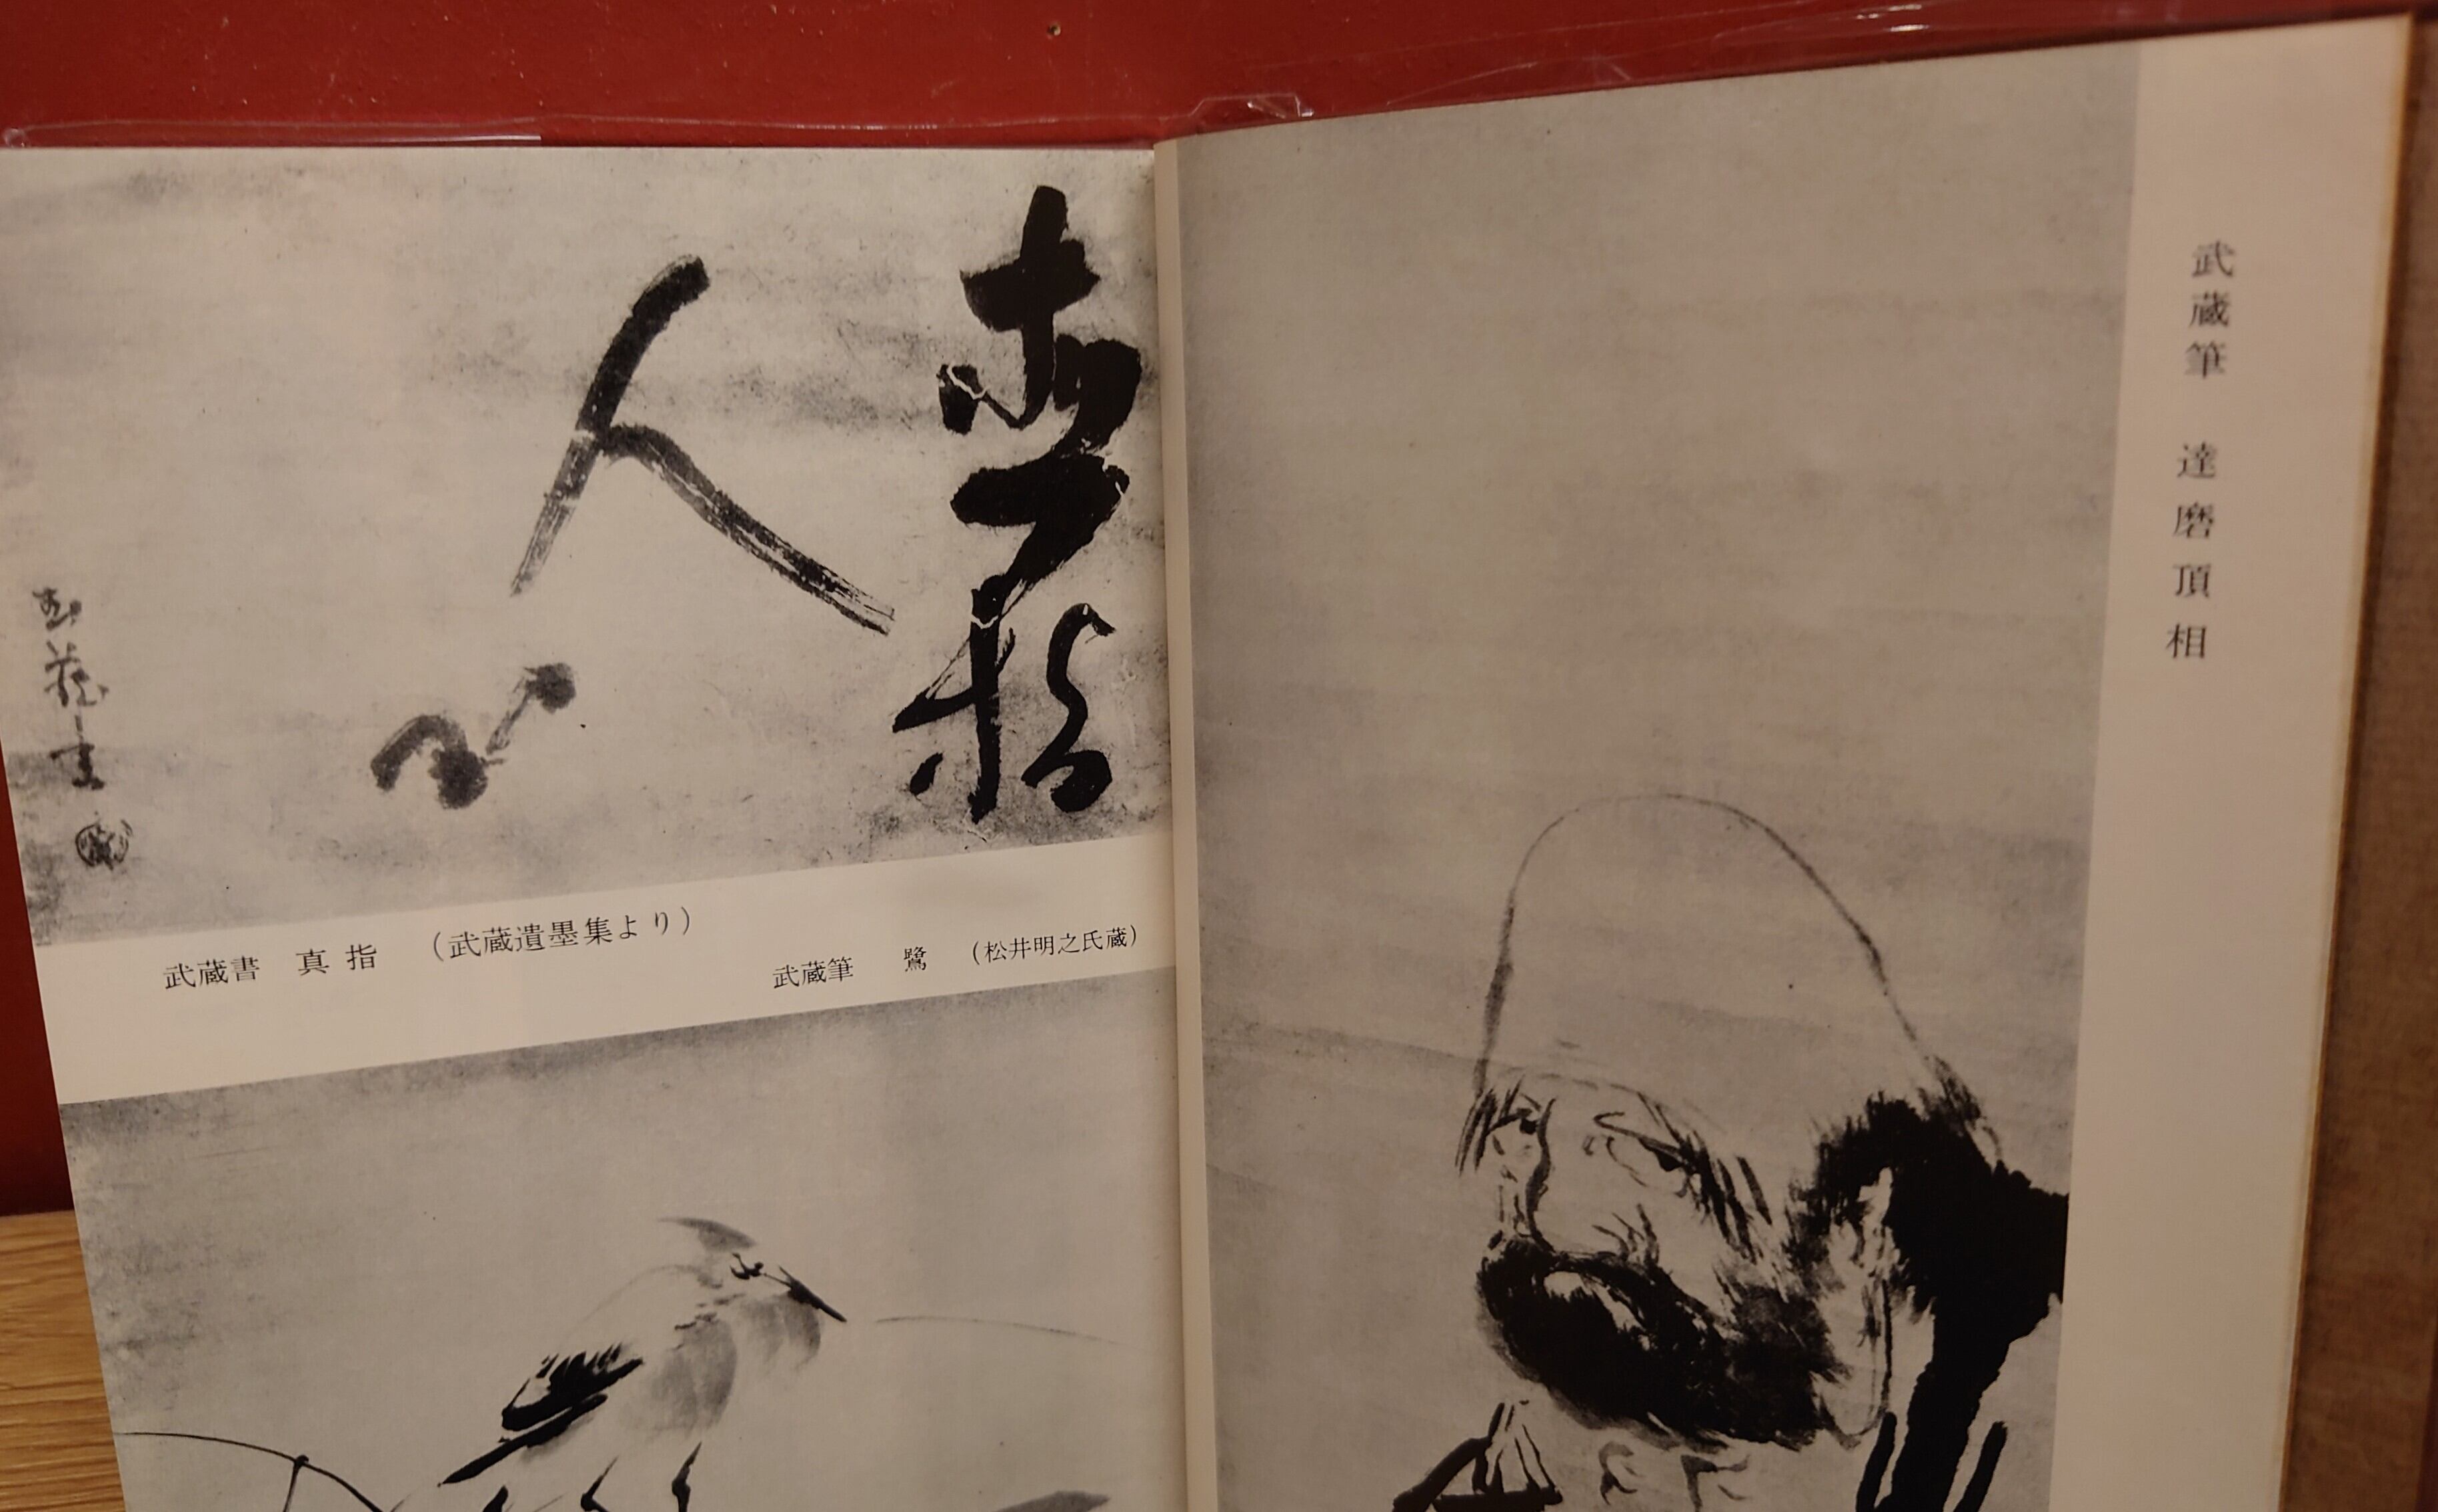 武蔵筆 達磨頂相
直指
人心
武蔵書 真指 (武蔵遺墨集より)
武蔵筆 鷺 (松井明之氏蔵)